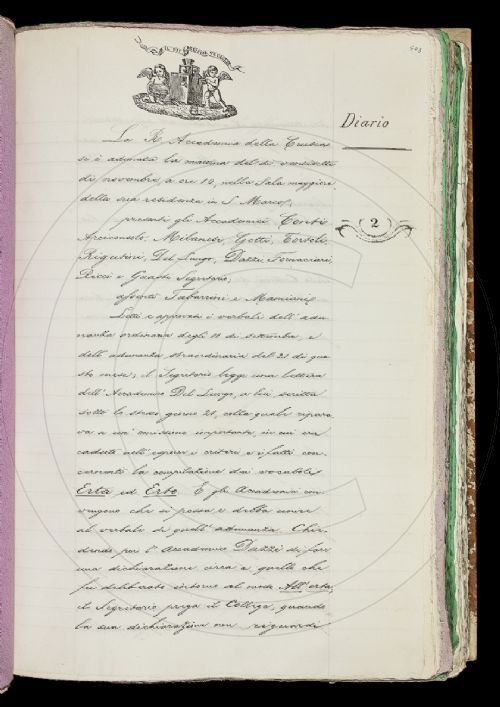 IL PIÙ BEL FIOR NE COGLIE
503
Diario
2
La R. Accademia della Crusca
si è adunata la mattina del dì ventisette
di novembre, a ore 10, nella Sala maggiore
della sua residenza in S. Marco;
presenti gli Accademici Conti
Arciconsolo, Milanesi, Gotti, Tortoli,
Rigutini, Del Lungo, Dazzi, Fornaciari,
Ricci e Guasti Segretario;
assenti Tabarrini e Mamiani.
Letti e approvati i verbali dell'adu-
nanza ordinaria degli 11 di settembre, e
dell'adunanza straordinaria del 21 di que-
sto mese; il Segretario legge una lettera
dell'Accademico Del Lungo, a lui scritta
sotto lo stesso giorno 21, colla quale ripara-
va a un' omissione importante in cui era
caduto nell'esporre i criteri e i fatti con-
cernenti la compilazione dei vocaboli
Erta ed Erto. E gli Accademici con-
vengono che si possa e debba unire
al verbale di quell'adunanza. Chie-
dendo poi l'Accademico Dazzi di fare
una dichiarazione circa a quello che
fu deliberato intorno al modo All'erta,
il Segretario prega il Collega, quando
la sua dichiarazione non riguardi